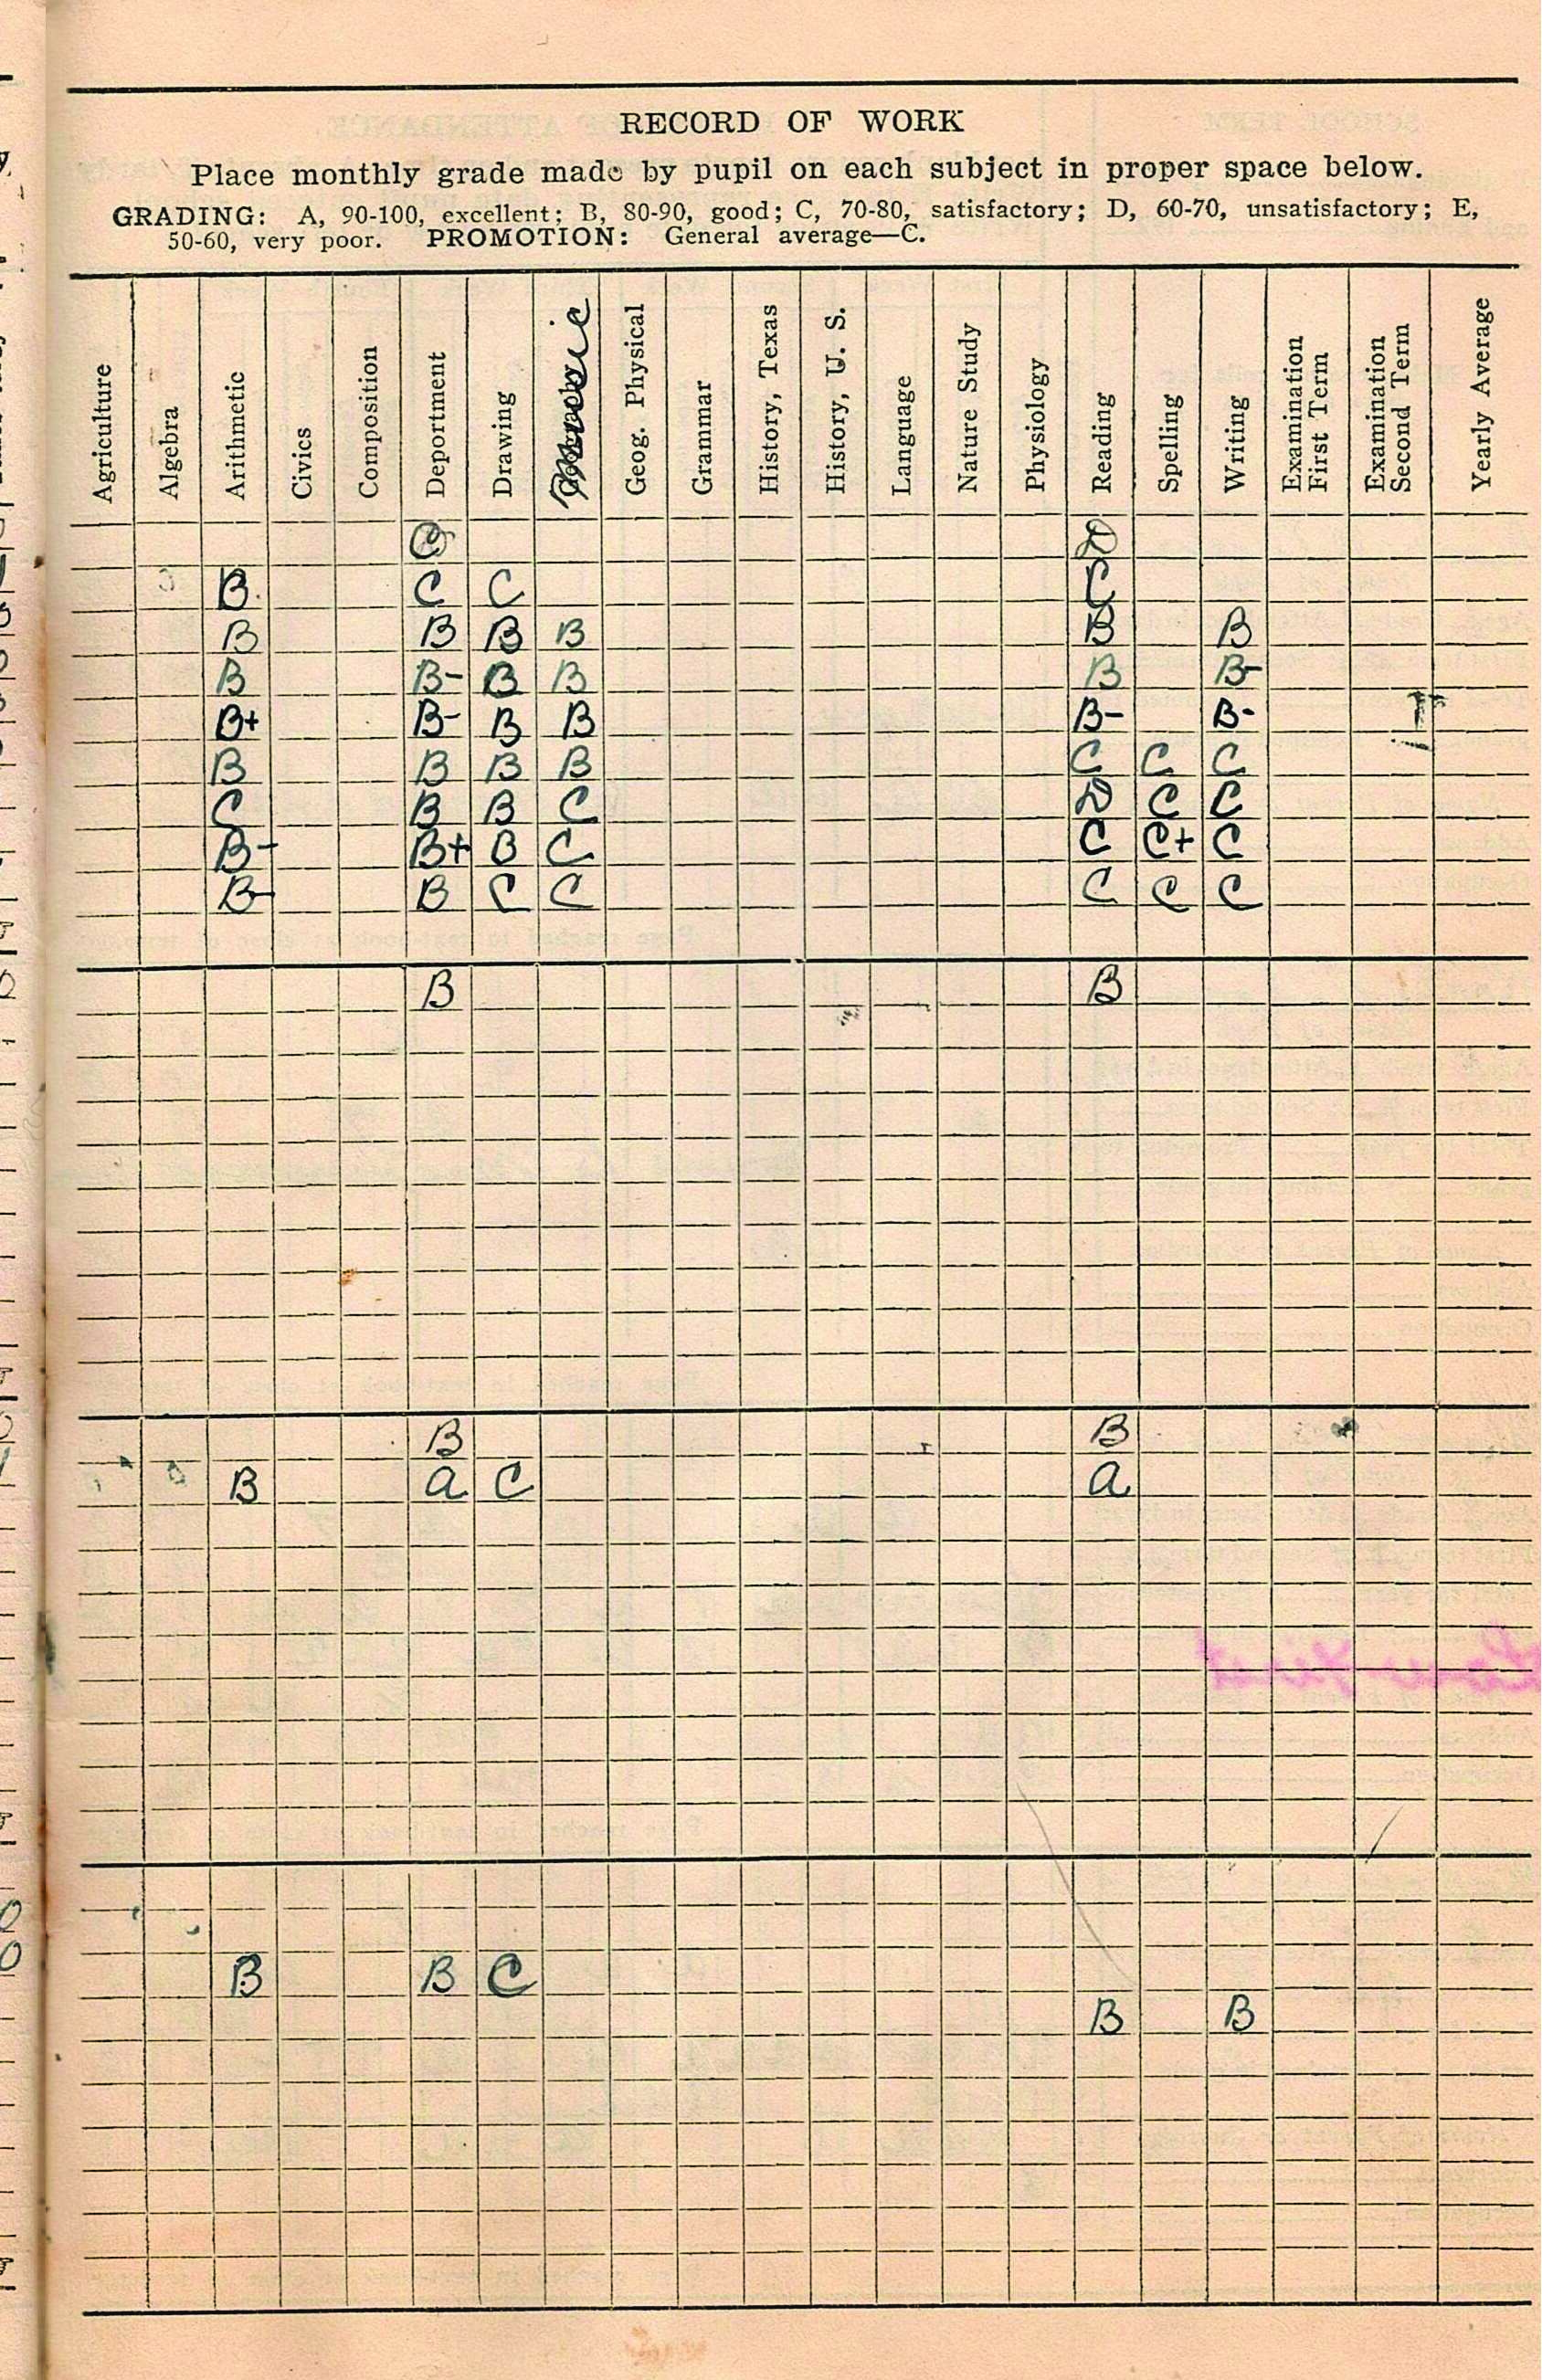 RECORD OF WORK
Place monthly grade made by pupil on each subject in proper space below.
GRADING: A, 90-100, excellent; B, 80-90, good; C, 70-80, satisfactory; D, 60-70, unsatisfactory; E,
50-60, very poor. PROMOTION: General average—C.
Agriculture
Algebra
Arithmetic
Civics
Composition
Deportment
Drawing
Music
Geog. Physical
Grammar
History, Texas
History, U. S.
Language
Nature Study
Physiology
Reading
Spelling
Writing
Examination
First Term
Examination
Second Term
Yearly Average
C D
B C C C
B B B B B B
B B- B B B B-
B+ B- B B B- B-
B B B B C C C
C B B C D C C
B- B+ B C C C+ C
B- B C C C C C
B B
B B
B A C A
B B C
B B